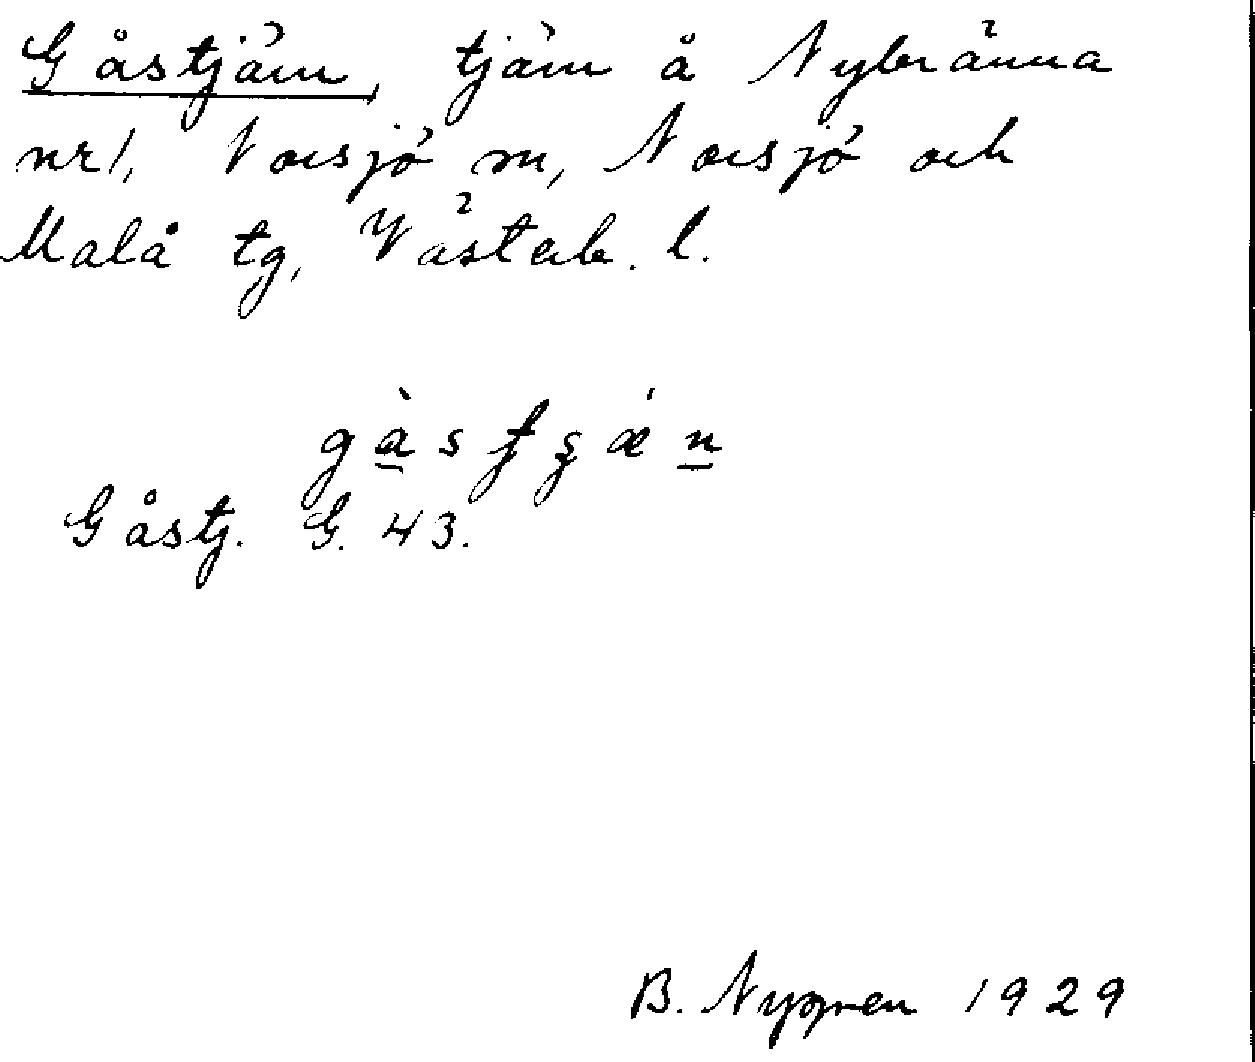 Gåstjärn, tjärn å Nybränna
nr 1, Norsjö sn, Norsjö och
Malå tg, Västerb. l.
Gåstj. G. 43.
B. Nygren 1929